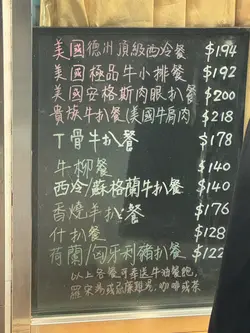 美國德洲頂級西冷餐 $194
美國極品牛小排餐 $192
美國安格斯肉眼扒餐 $200
貴族牛扒餐(美國牛肩肉) $218
T骨牛扒餐 $178
牛柳餐 $140
西冷/蘇格蘭牛扒餐 $140
香燒羊扒餐 $176
什扒餐 $128
荷蘭/匈牙利豬扒餐 $122
以上各餐可奉送牛油餐飽,
羅宋湯或忌廉雞湯,咖啡或茶